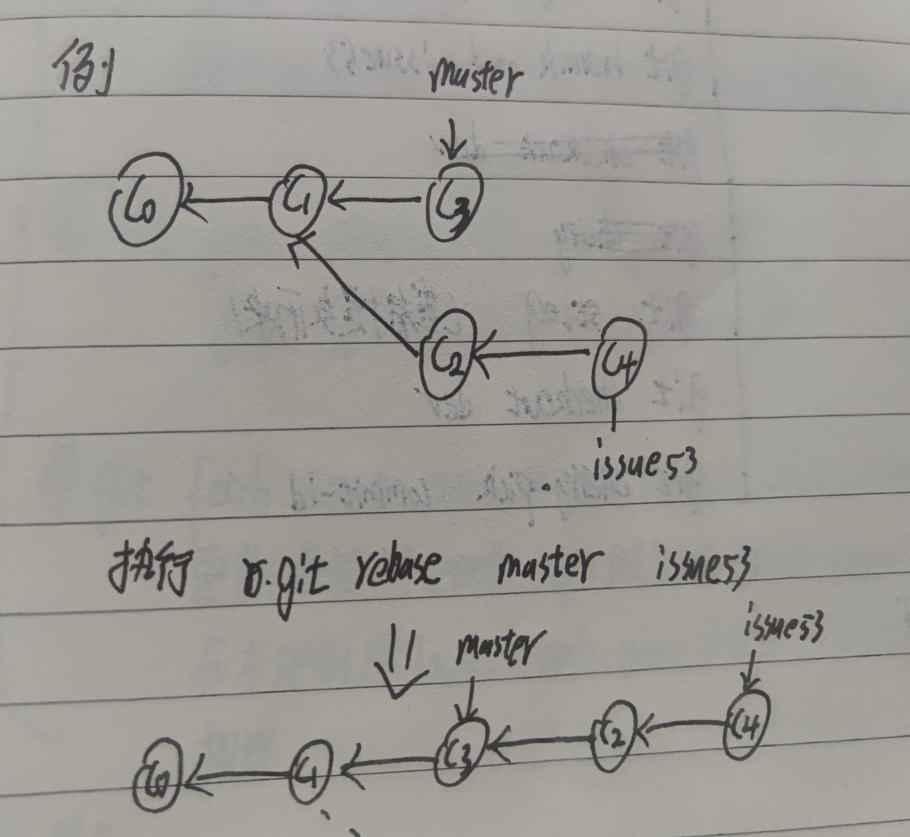 例
master
C0 C1 C3
C2 C4
issue53
执行 ①.git rebase master issue53
issue53
master
C0 C1 C3 C2 C4